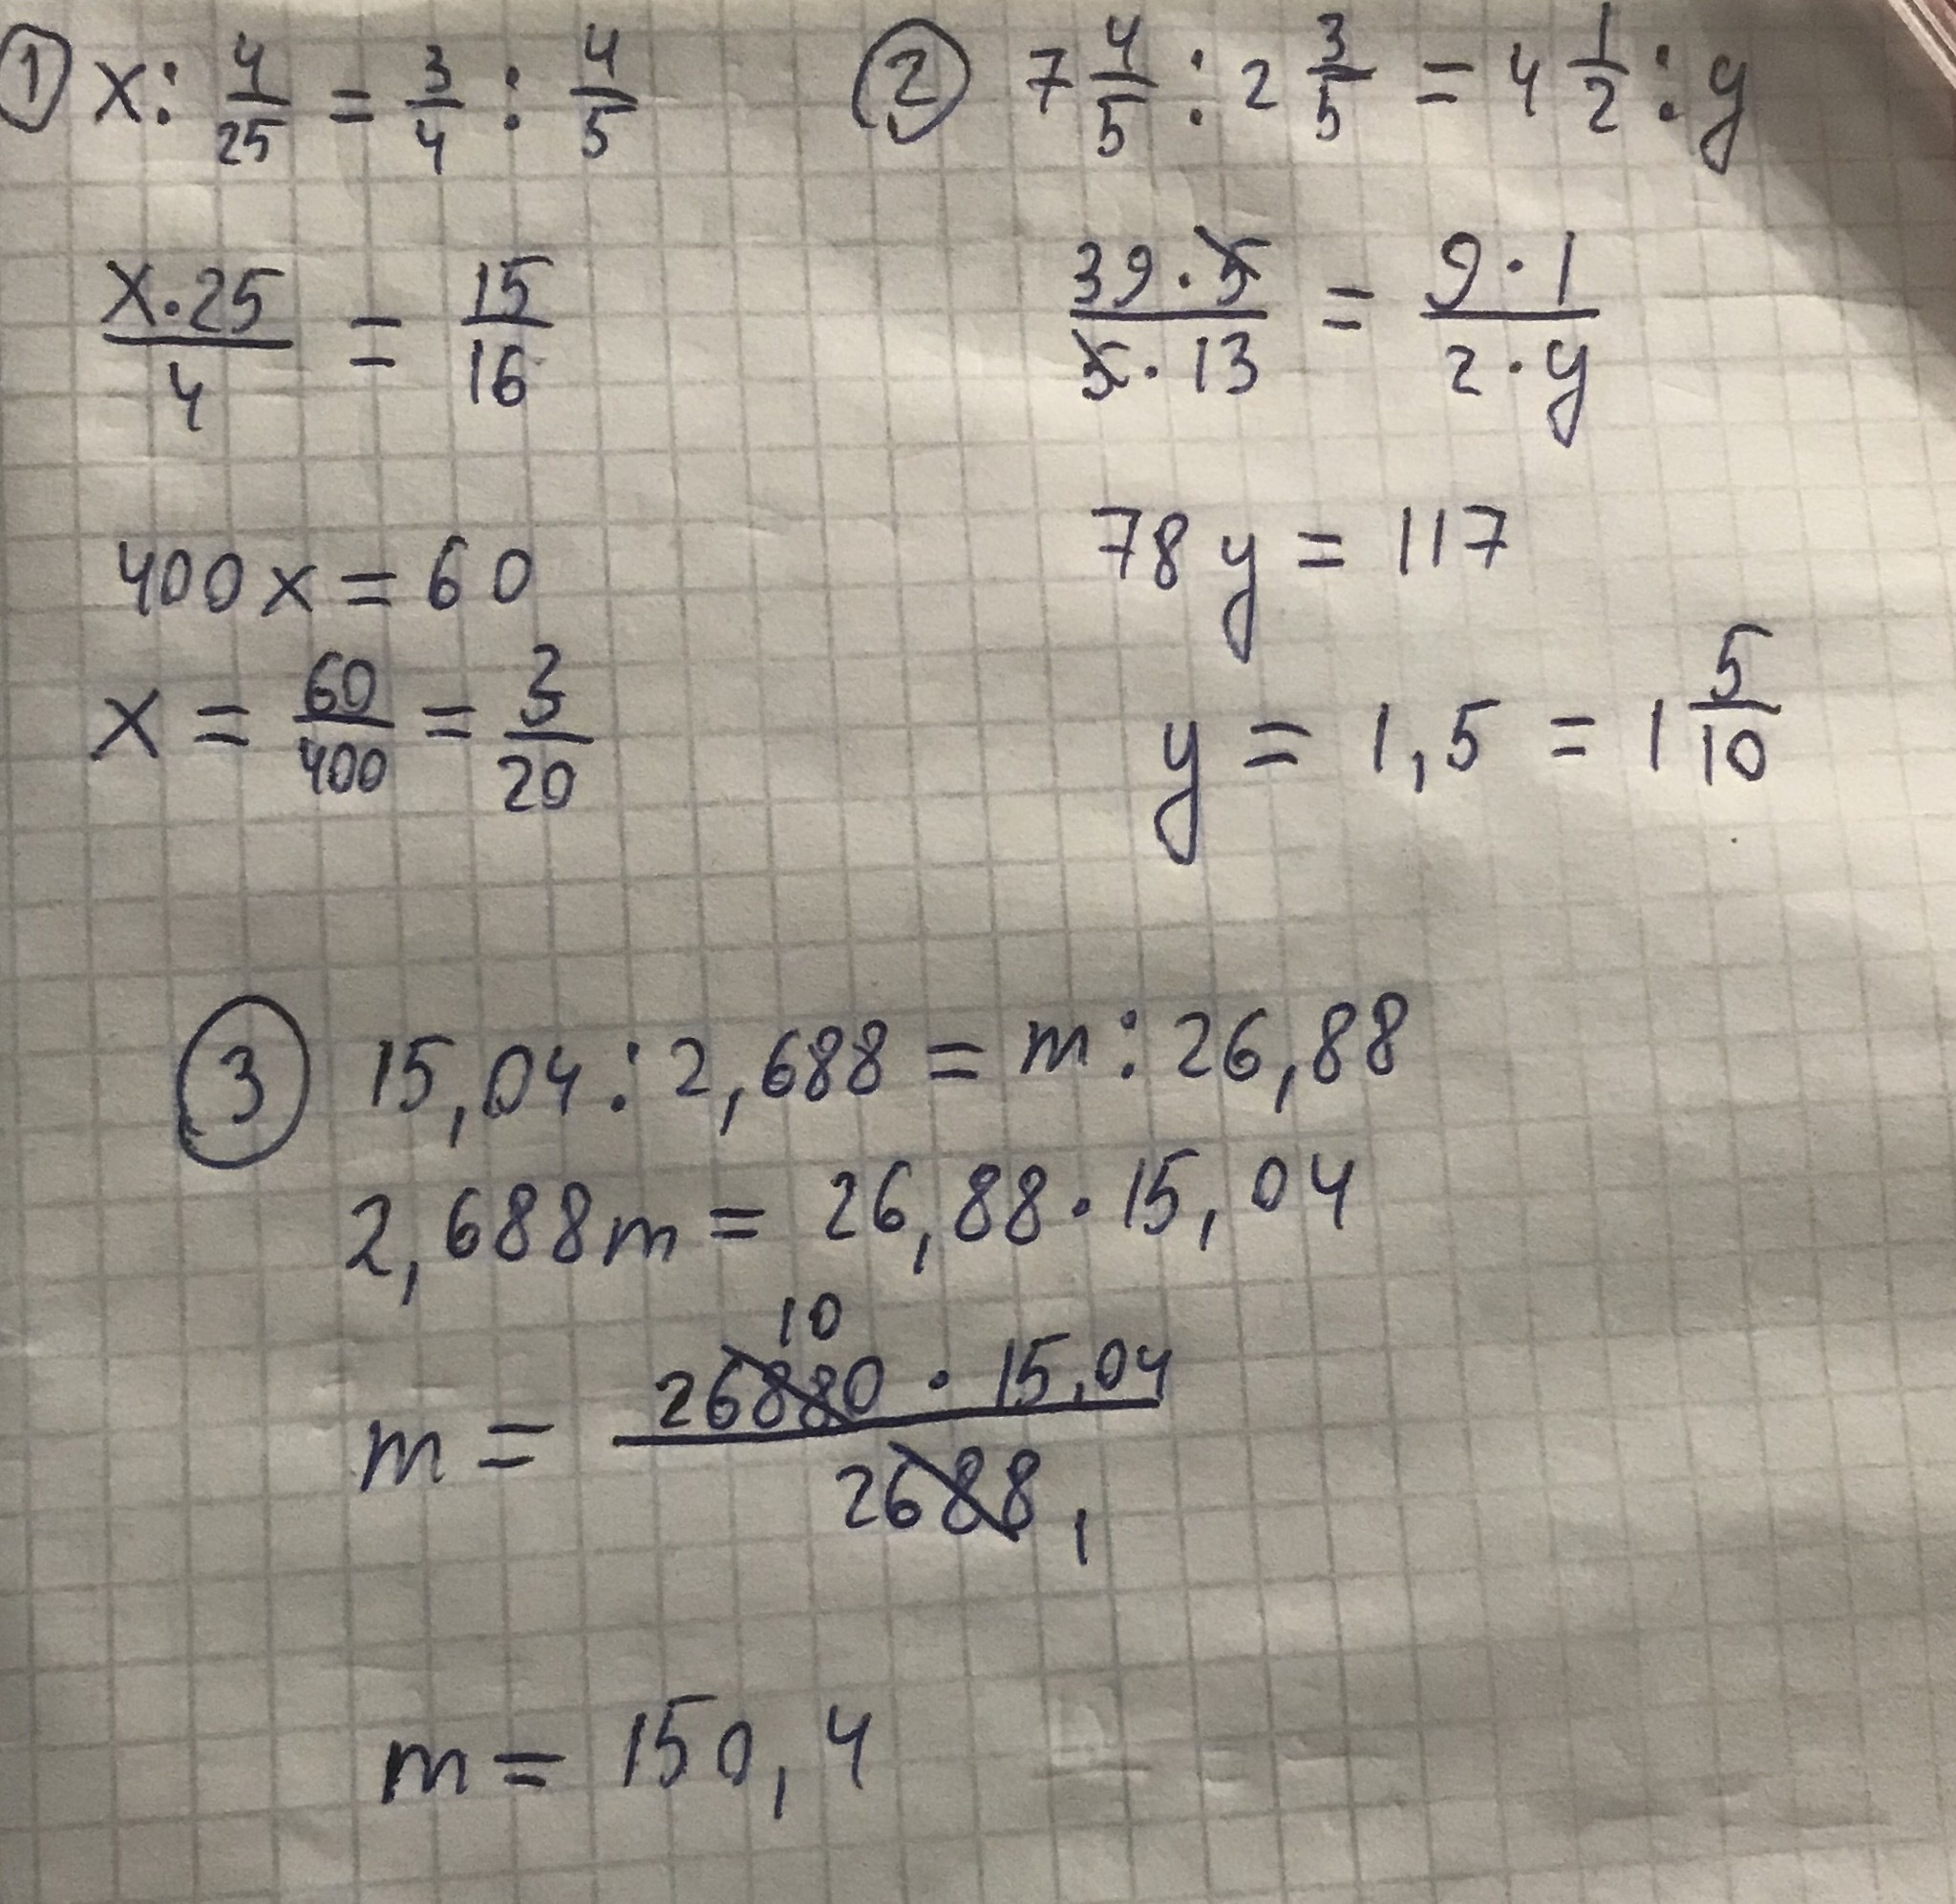 ① x : 4/25 = 3/4 : 4/5
x·25/4 = 15/16
400x = 60
x = 60/400 = 3/20
② 7 4/5 : 2 3/5 = 4 1/2 : y
39·5/5·13 = 9·1/2·y
78y = 117
y = 1,5 = 1 5/10
③ 15,04 : 2,688 = m : 26,88
2,688m = 26,88·15,04
10
m = 26880 · 15,04/2688 1
m = 150,4